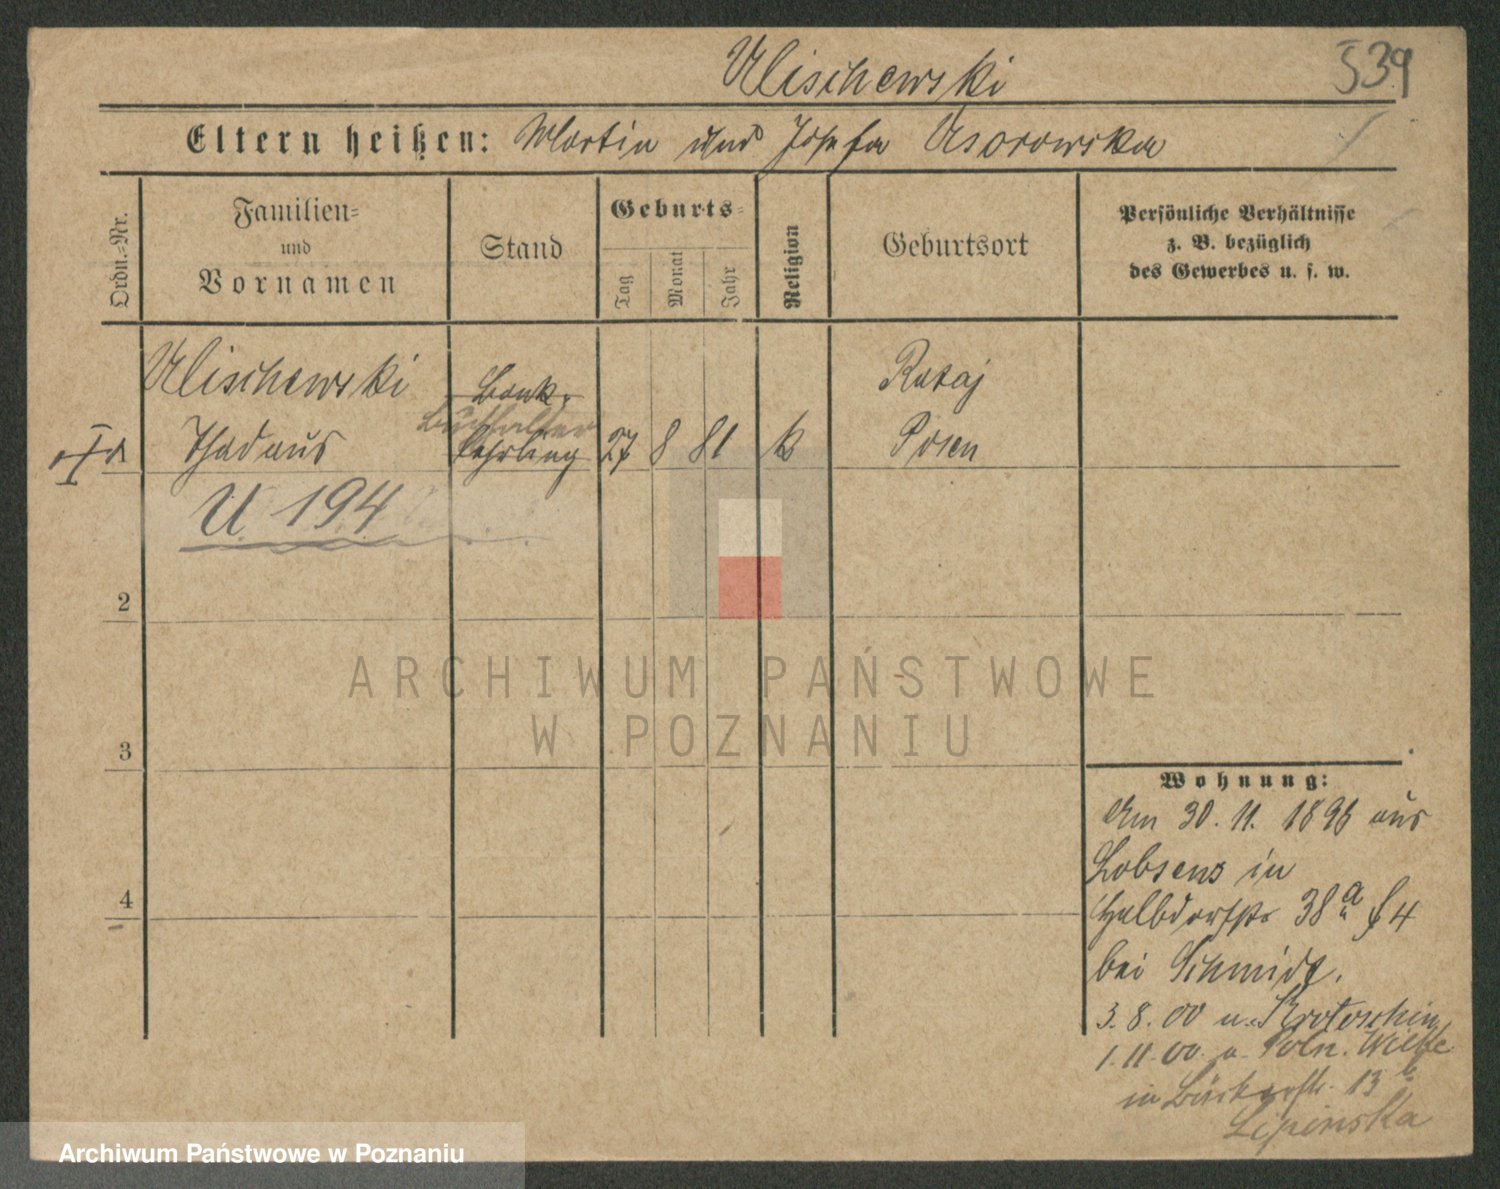 Ulischewski
539
Eltern heißen: Martin und Josefa Osorowska
Ordn.-Nr.
Familien-
und
Vornamen
Stand
Geburts-
Tag
Monat
Jahr
Religion
Geburtsort
Persönliche Verhältnisse
z. B. bezüglich
des Gewerbes u. s. w.
Ulischewski
Thadäus
Bank.
Buchhalter
Lehrling
27 8 81 k
Rataj
Posen
U 194
2
3
4
Wohnung:
Am 30. 11. 1896 aus
Lobsens in
Halbdorfstr 38a
bei Schmidt.
3. 8. 00 n. Krotoschin
1. 11. 00. a. Poln. Wilke
in Bäckerstr. 13
Lipinska
ARCHIWUM PAŃSTWOWE
W POZNANIU
Archiwum Państwowe w Poznaniu